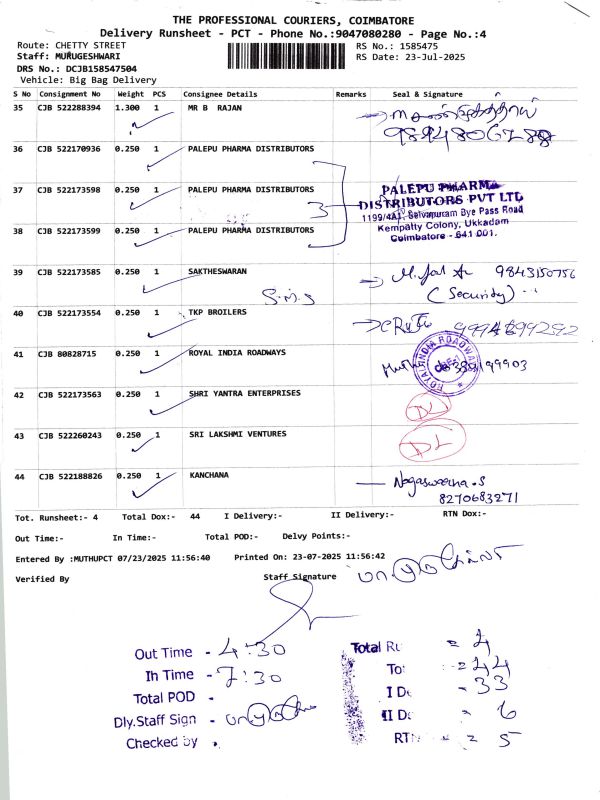 THE PROFESSIONAL COURIERS, COIMBATORE
Delivery Runsheet - PCT - Phone No.:9047080280 - Page No.:4
Route: CHETTY STREET RS No.: 1585475
Staff: MURUGESHWARI RS Date: 23-Jul-2025
DRS No.: DCJB158547504
Vehicle: Big Bag Delivery
S No Consignment No Weight PCS Consignee Details Remarks Seal & Signature
35 CJB 522288394 1.300 1 MR B RAJAN
9894806788
36 CJB 522170936 0.250 1 PALEPU PHARMA DISTRIBUTORS
37 CJB 522173598 0.250 1 PALEPU PHARMA DISTRIBUTORS
3
PALEPU PHARMA
DISTRIBUTORS PVT LTD
1199/4A1, Selvapuram Bye Pass Road
Kempatty Colony, Ukkadam
Coimbatore - 641 001.
38 CJB 522173599 0.250 1 PALEPU PHARMA DISTRIBUTORS
39 CJB 522173585 0.250 1 SAKTHESWARAN 9843150756
S.M.S (Security)
40 CJB 522173554 0.250 1 TKP BROILERS
41 CJB 80828715 0.250 1 ROYAL INDIA ROADWAYS
ROYAL INDIA ROADWAYS
42 CJB 522173563 0.250 1 SHRI YANTRA ENTERPRISES
DL
43 CJB 522260243 0.250 1 SRI LAKSHMI VENTURES
DL
44 CJB 522188826 0.250 1 KANCHANA
8270683271
Tot. Runsheet:- 4 Total Dox:- 44 I Delivery:- II Delivery:- RTN Dox:-
Out Time:- In Time:- Total POD:- Delvy Points:-
Entered By :MUTHUPCT 07/23/2025 11:56:40 Printed On: 23-07-2025 11:56:42
Verified By Staff Signature
Out Time - 4:30
In Time - 7:30
Total POD -
Dly.Staff Sign -
Checked by
Total Ru = 4
To: = 44
I De - 33
II De = 6
RTN = 5